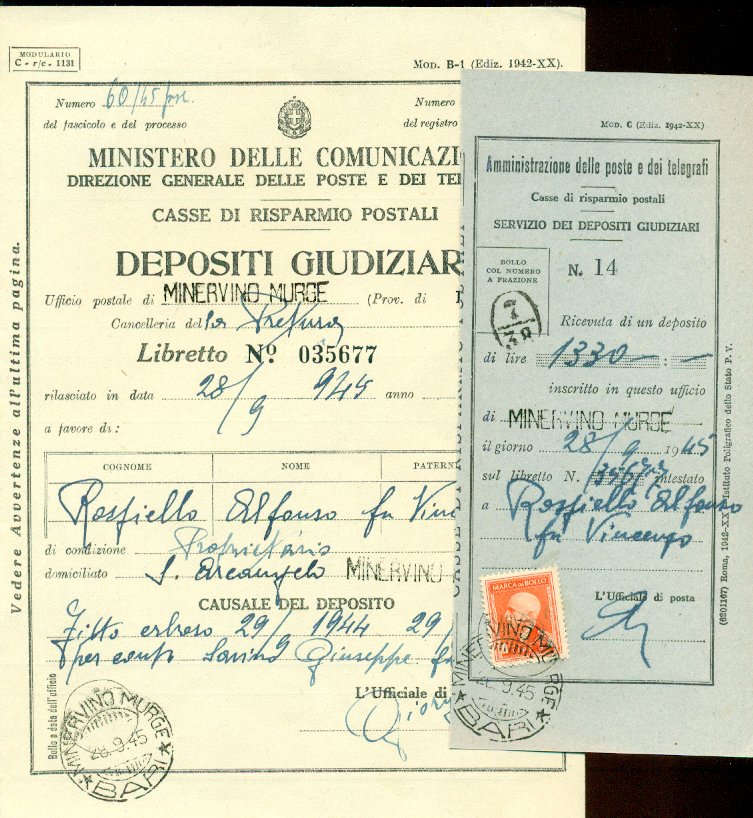 MODULARIO
C - r/c - 1131
MOD. B-1 (Ediz. 1942-XX).
Numero 60/45
del fascicolo e del processo
Numero
del registro
MINISTERO DELLE COMUNICAZI
DIREZIONE GENERALE DELLE POSTE E DEI TEL
CASSE DI RISPARMIO POSTALI
DEPOSITI GIUDIZIAR
Ufficio postale di MINERVINO MURGE (Prov. di
Cancelleria della Pretura
Libretto Nº 035677
rilasciato in data 28/9 945 anno
a favore di:
COGNOME NOME PATERN
Rosfiello Alfonso fu Vinc
di condizione Proprietario
domiciliato S. Arcangelo MINERVINO
CAUSALE DEL DEPOSITO
Fitto erboso 29/ 1944 29/
per conto Savino Giuseppe fu
L'Ufficiale di
Bollo a data dell'ufficio
MINERVINO MURGE
28.9.45
BARI
Vedere Avvertenze all'ultima pagina.
MOD. C (Ediz. 1942-XX)
Amministrazione delle poste e dei telegrafi
Casse di risparmio postali
SERVIZIO DEI DEPOSITI GIUDIZIARI
BOLLO
COL NUMERO
A FRAZIONE
N. 14
7
38
Ricevuta di un deposito
di lire 1330
inscritto in questo ufficio
di MINERVINO MURGE
il giorno 28/9 1945
sul libretto N. intestato
a Rosfiello Alfonso
fu Vincenzo
MARCA DA BOLLO
L'Ufficiale di posta
MINERVINO MURGE
28.9.45
BARI
(6201167) Roma, 1942-XX - Istituto Poligrafico dello Stato P. V.